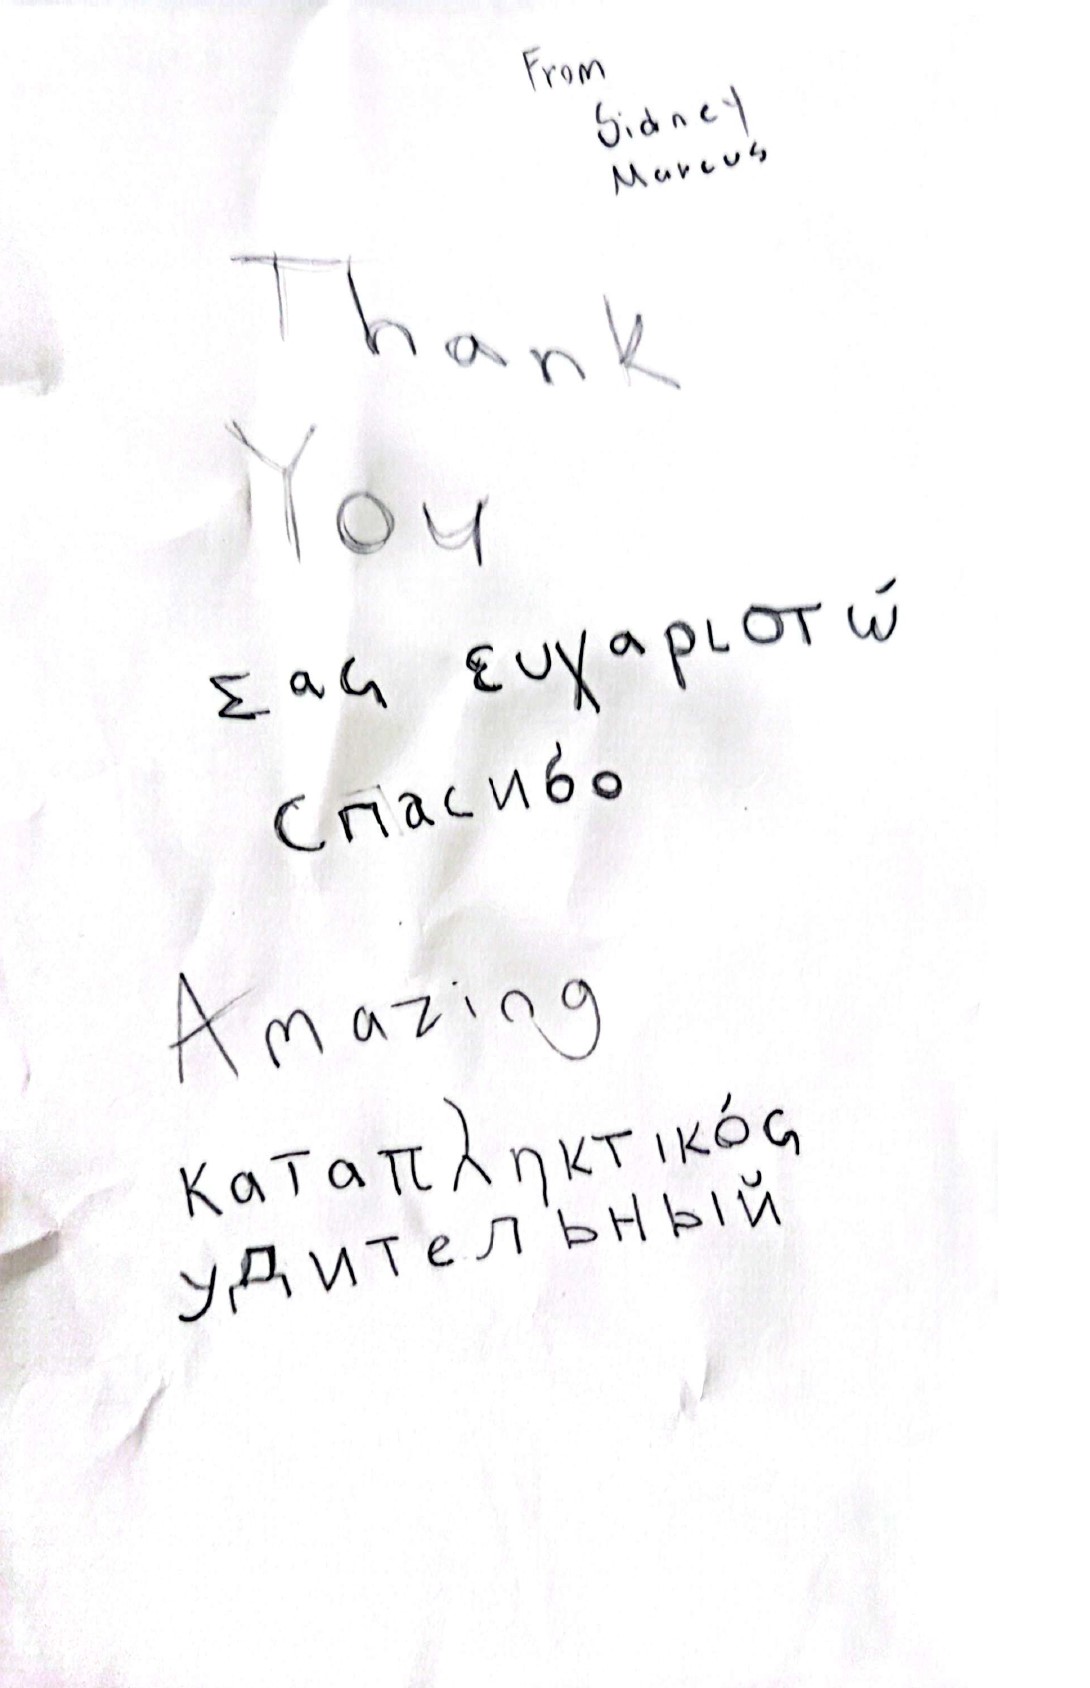 From
Sidney
Marcus
Thank
You
Σας ευχαριστώ
Спасибо
Amazing
καταπληκτικός
удительный